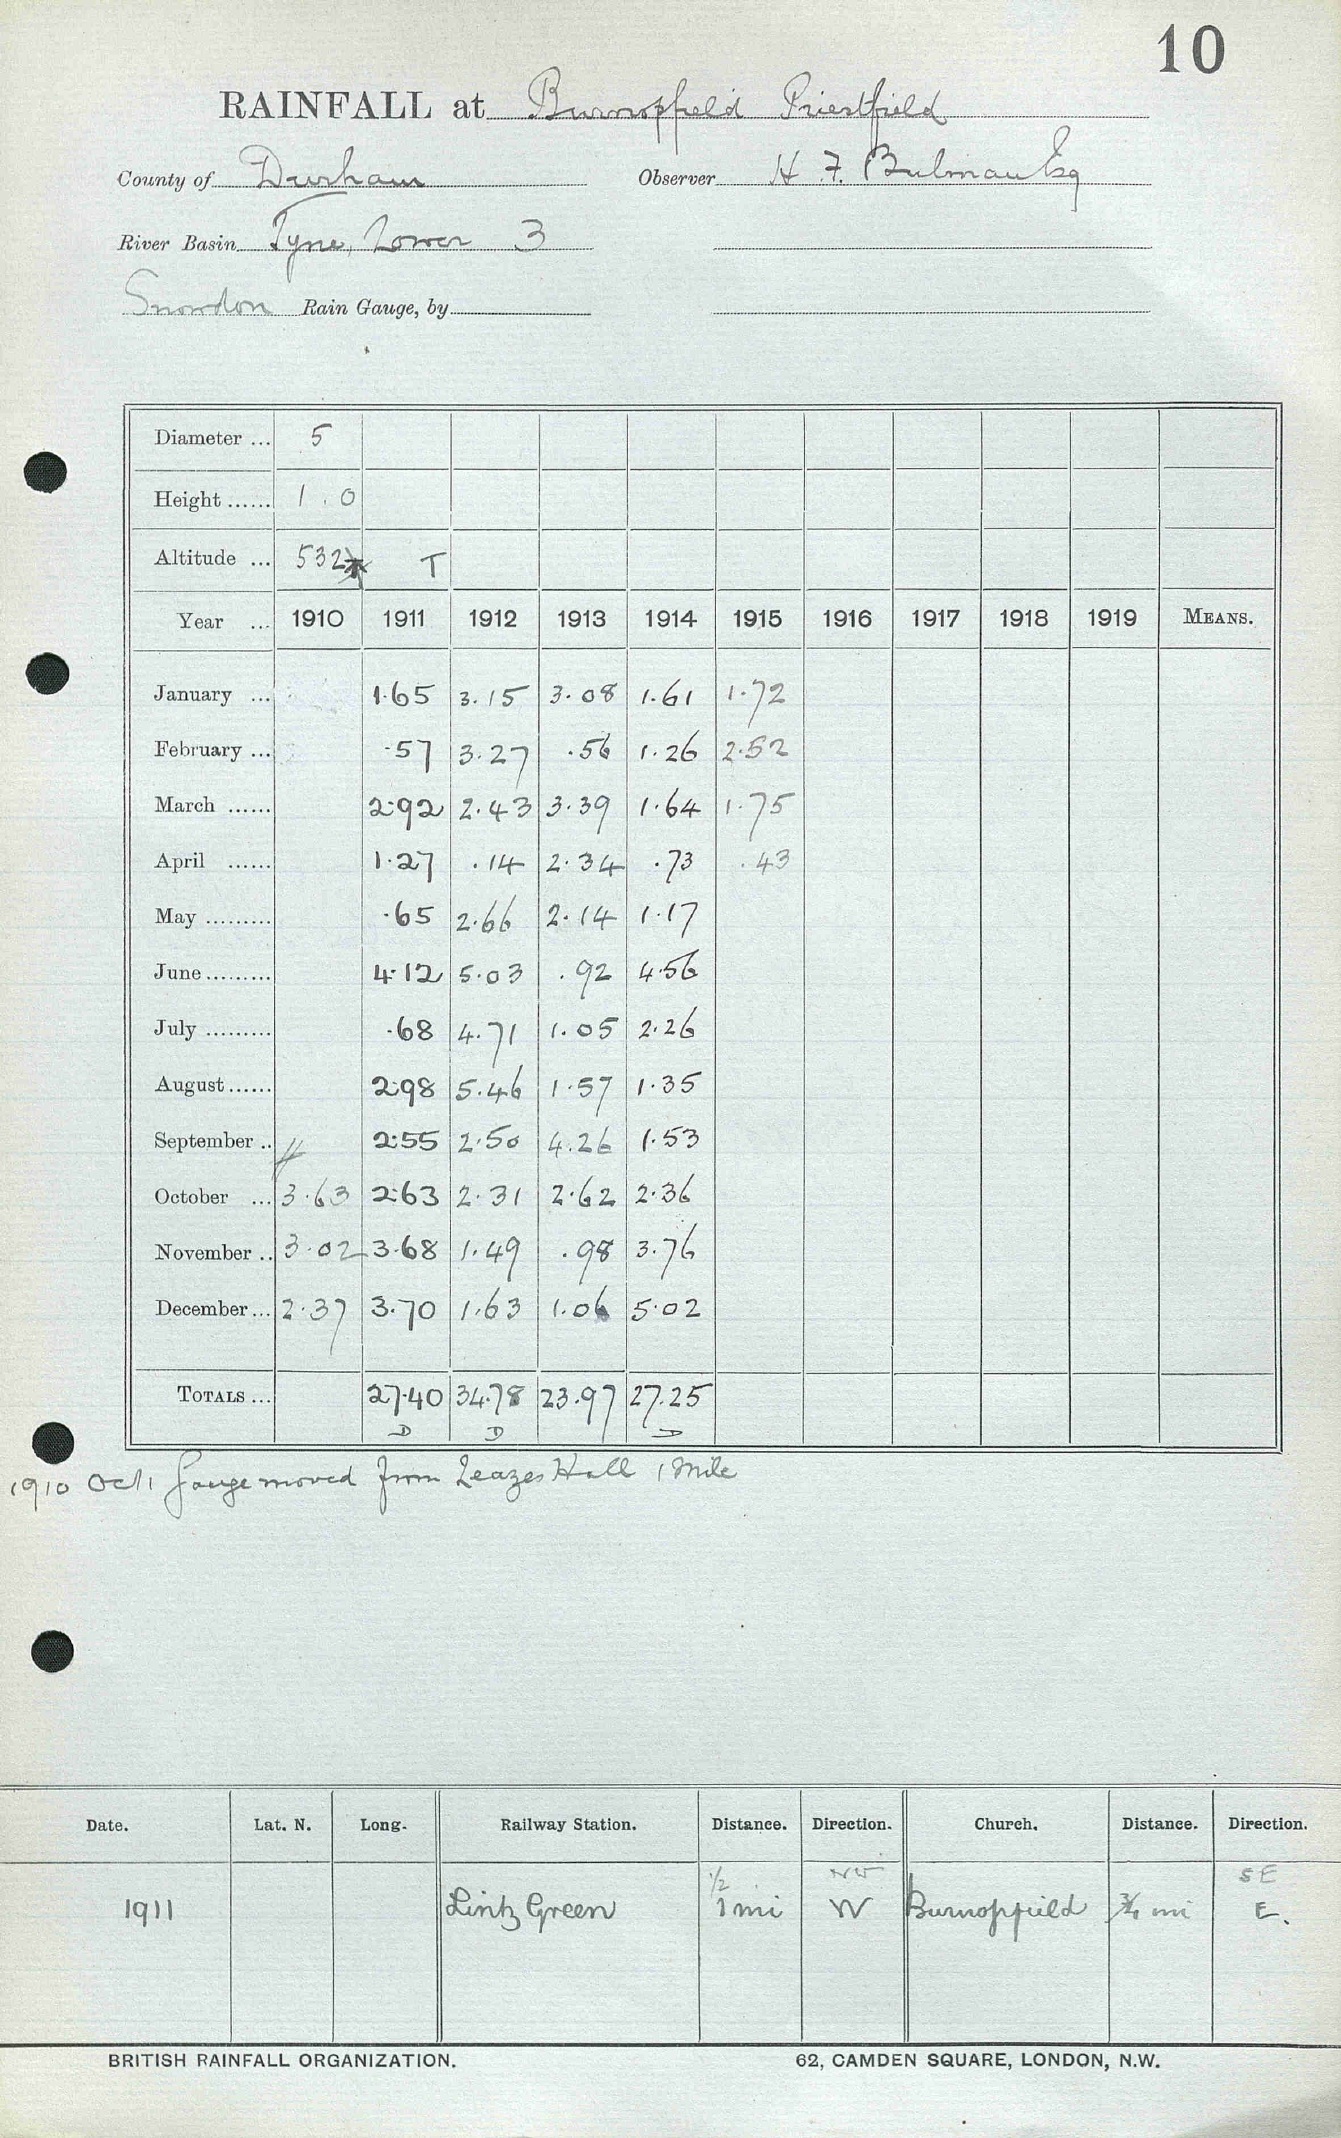 10
RAINFALL at Burnopfield Priestfield
County of Durham Observer H. F. Bulman Esq
River Basin Tyne, Lower 3
Snowdon Rain Gauge, by
Diameter ... 5
Height ...... 1.0
Altitude ... 532 T
Year ... 1910 1911 1912 1913 1914 1915 1916 1917 1918 1919 MEANS.
January ... 1.65 3.15 3.08 1.61 1.72
February ... .57 3.27 .56 1.26 2.52
March ...... 2.92 2.43 3.39 1.64 1.75
April ...... 1.27 .14 2.34 .73 .43
May ......... .65 2.66 2.14 1.17
June ......... 4.12 5.03 .92 4.56
July ......... .68 4.71 1.05 2.26
August ...... 2.98 5.46 1.57 1.35
September .. 2.55 2.50 4.26 1.53
October ... 3.63 2.63 2.31 2.62 2.36
November .. 3.02 3.68 1.49 .98 3.76
December ... 2.37 3.70 1.63 1.06 5.02
TOTALS ... 27.40 34.78 23.97 27.25
D D D
1910 Oct 1 Gauge moved from Leazes Hall 1 Mile
Date. Lat. N. Long. Railway Station. Distance. Direction. Church. Distance. Direction.
1/2 NW SE
1911 Lintz Green 1 mi W Burnopfield 3/4 mi E.
BRITISH RAINFALL ORGANIZATION. 62, CAMDEN SQUARE, LONDON, N.W.